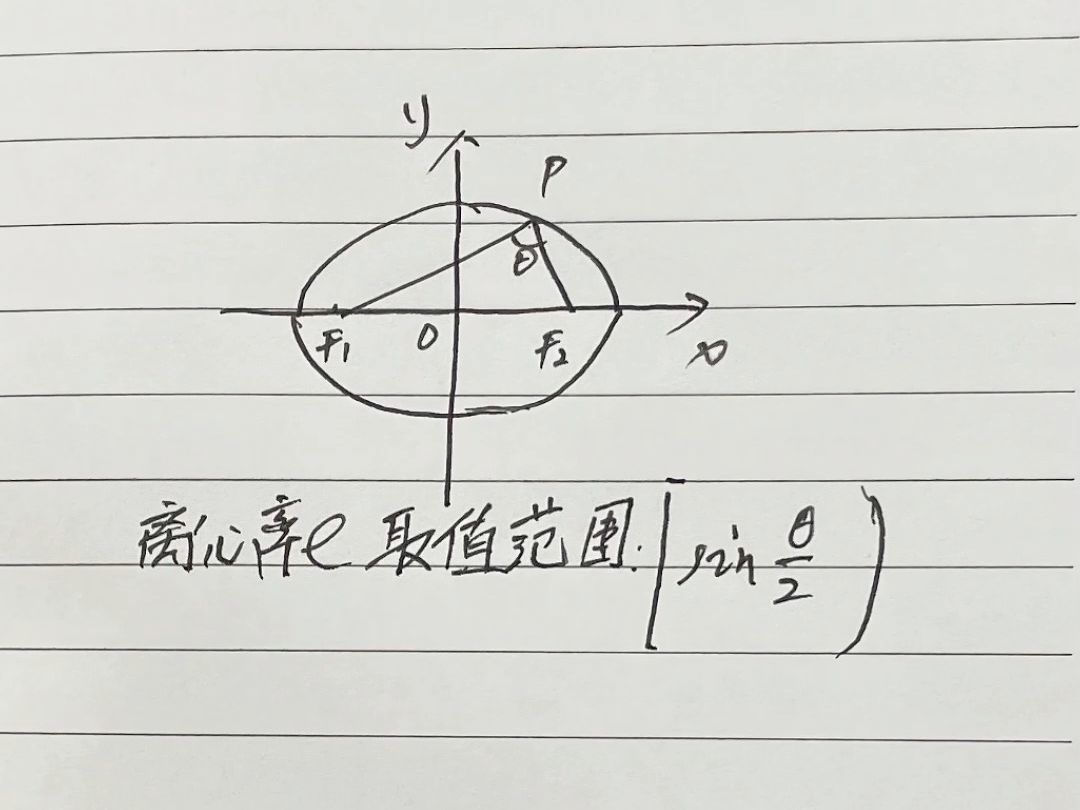 y
P
θ
F₁ O F₂ x
离心率e 取值范围:[sin θ/2 )